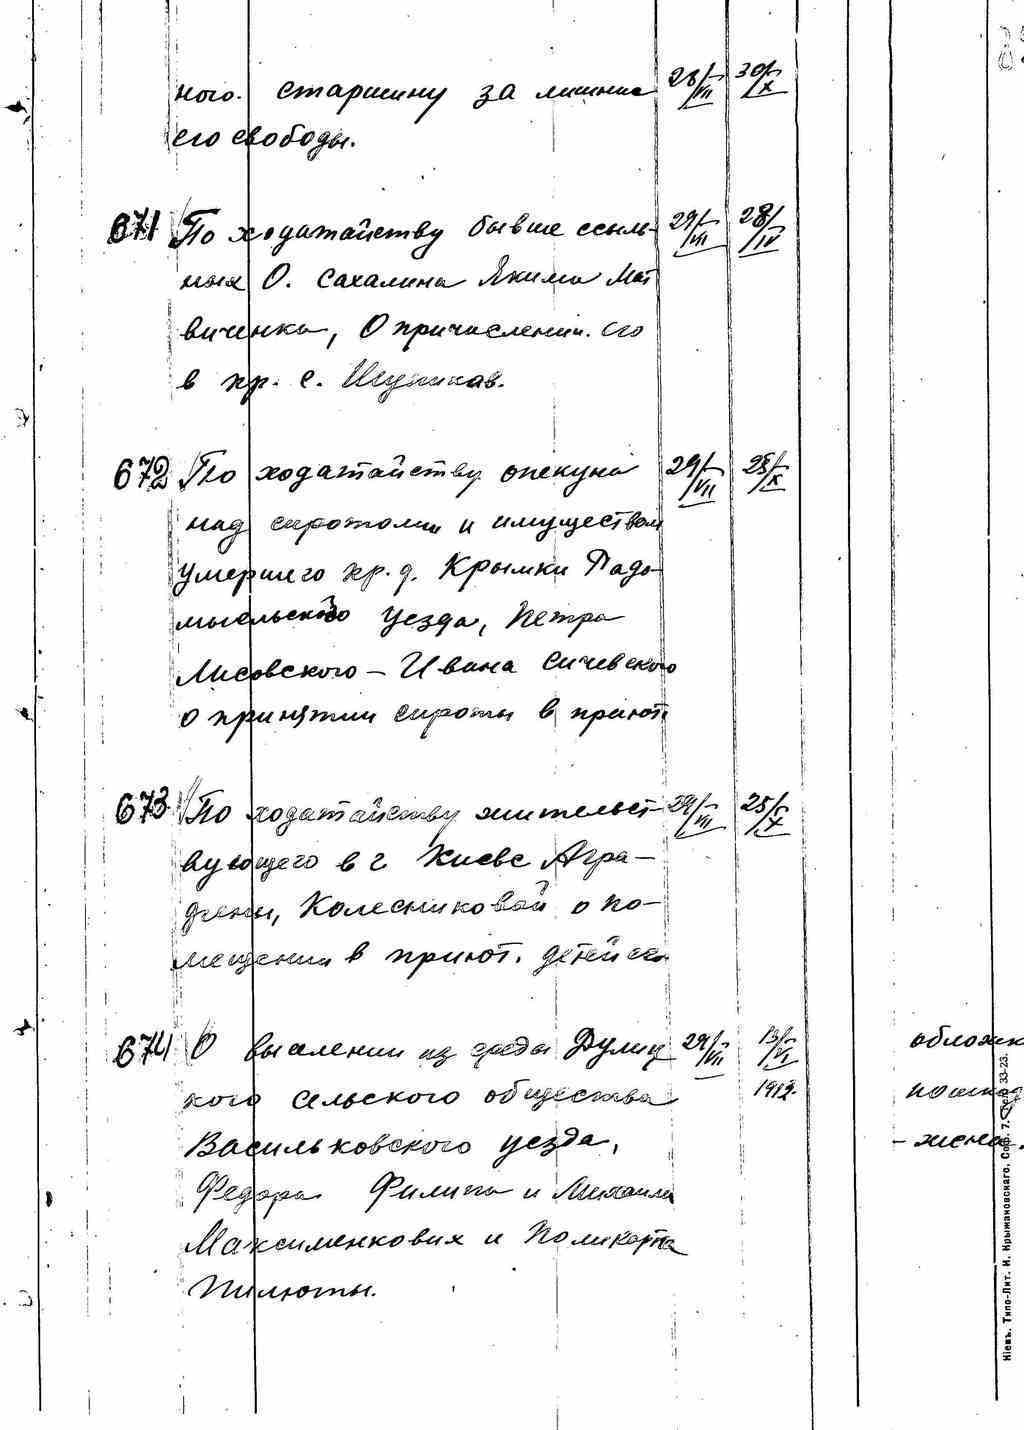 ного старшину за лишение 28/VII 30/X
его свободы.
671 По ходатайству бывше ссыль- 29/VII 28/IV
ных О. Сахалина Якима Мат
виченка, О причислении его
в кр. с.
672 По ходатайству опекуна 29/VII 25/X
над сиротами и имуществом
умершего кр. д. Крымки Радо-
мысльского уезда, Петра
Лисовского – Ивана Сичевского
о принятии сироты в приют.
673 По ходатайству жительст- 29/VII 25/X
вующего в г Киеве Агра-
фены, Колесниковой о по-
мещении в приют. детей ея
674 О выселении из среды Дулиц 29/VII 13/VI облож
кого сельского общества 1912.
Васильковского уезда,
Федора Филипа и Михаила
Максименкових и Поликарпа
Пилюты.
Кіевъ. Типо-Лит. И. Крыжановскаго, Соф. 7. Тел. 33-23.